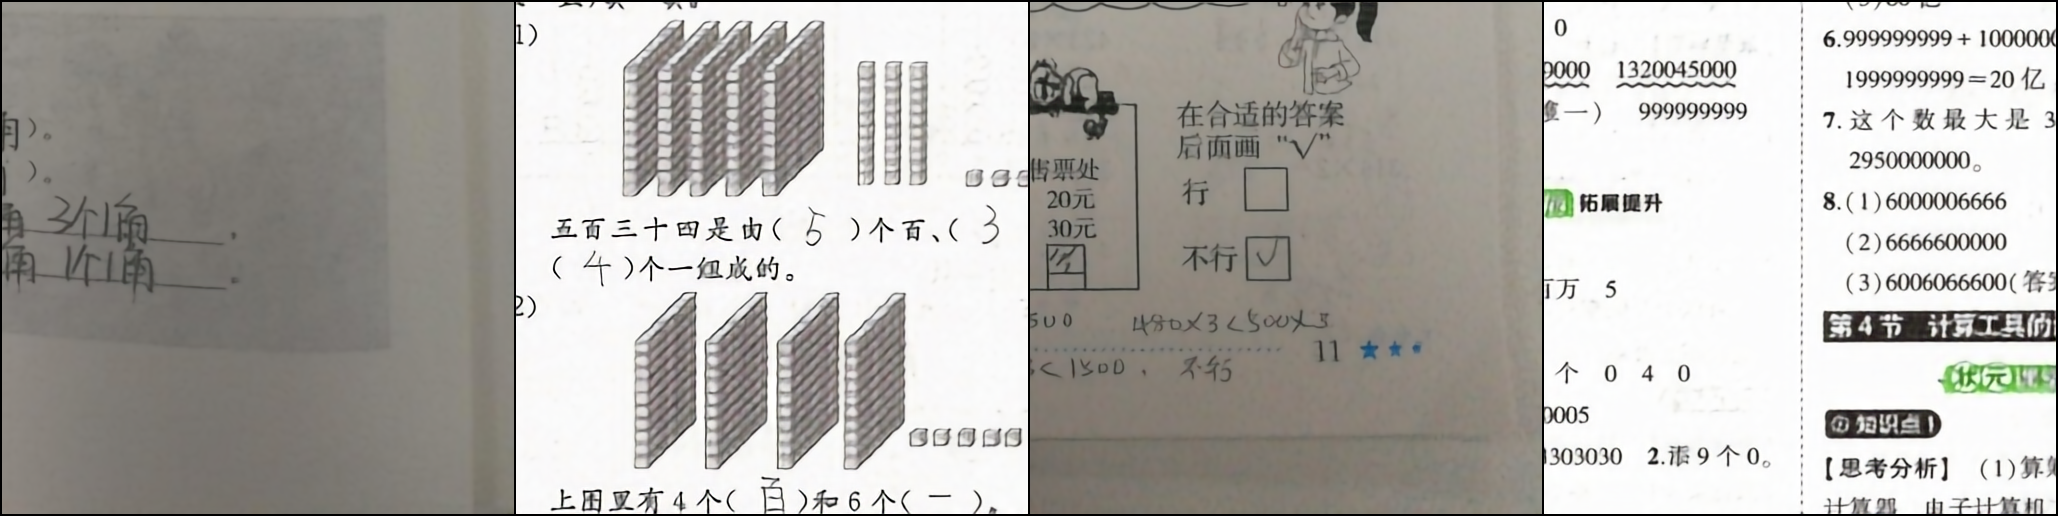 角 3个1角
角 1个1角
1)
五百三十四是由( 5 )个百、( 3
( 4 )个一组成的。
2)
上图里有4个( 百 )和6个( 一 )。
在合适的答案
后面画“√”
售票处
20元
30元
行
不行 √
500 480×3<500×3
11
<1500, 不行
0
9000 1320045000
999999999
拓展提升
百万 5
个 0 4 0
0005
303030 2.添9个0。
6.999999999+1000000
1999999999=20亿
7.这个数最大是3
2950000000。
8.(1)6000006666
(2)6666600000
(3)6006066600(答案
第4节 计算工具的
状元
知识点1
【思考分析】 (1)算
计算器 电子计算机